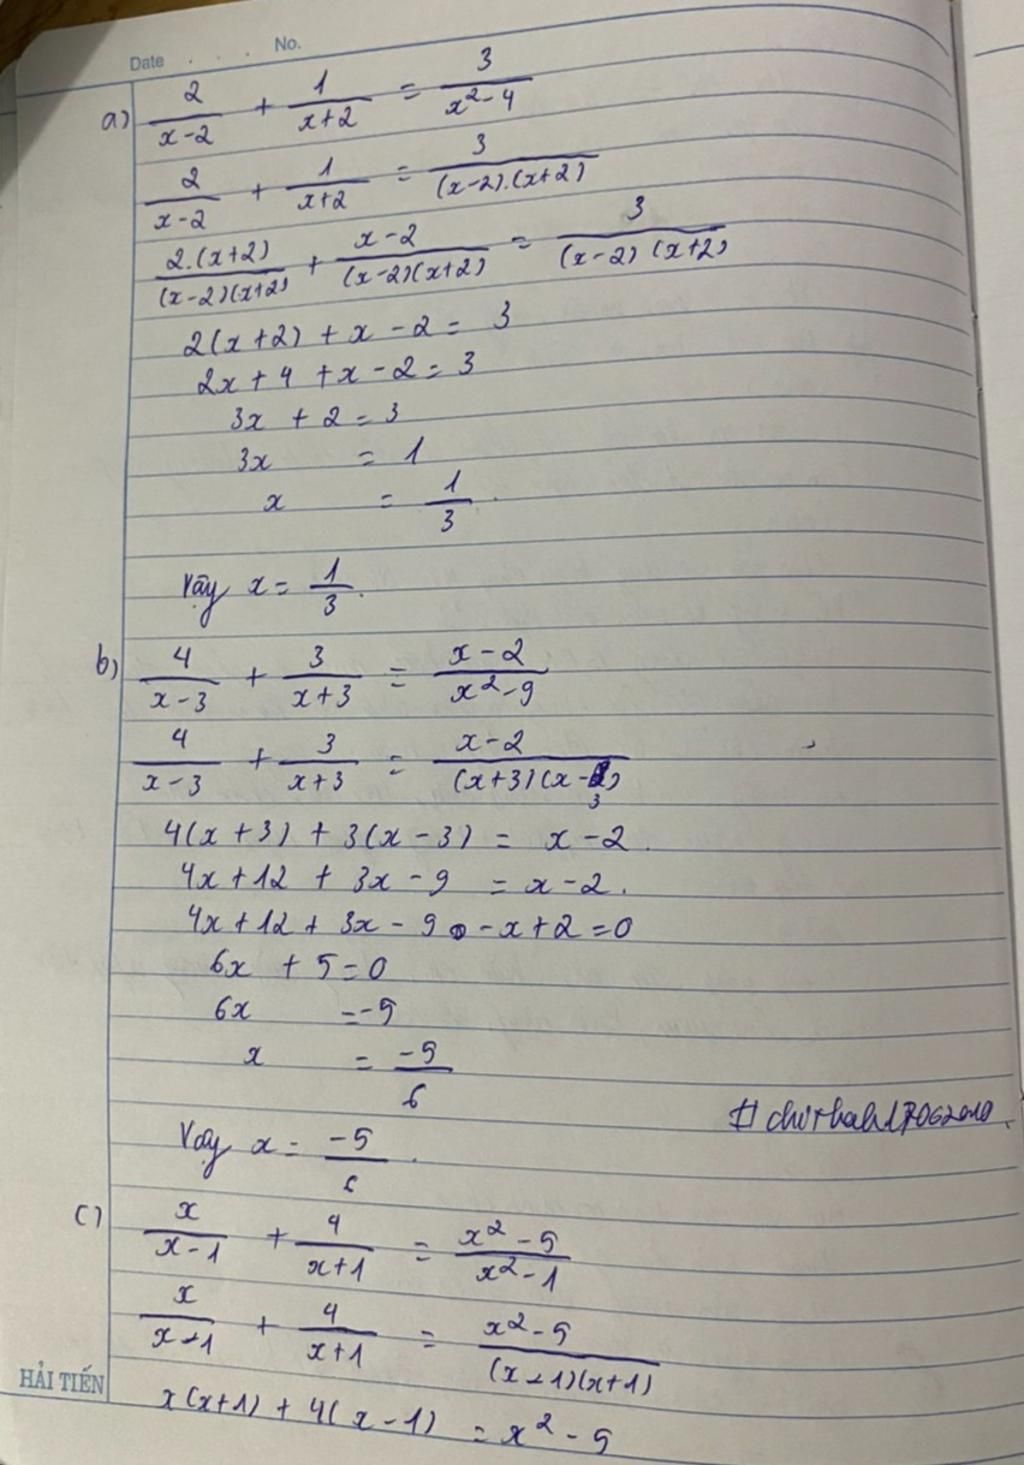 Date . . . No.
a) 2/(x-2) + 1/(x+2) = 3/(x²-4)
2/(x-2) + 1/(x+2) = 3/((x-2).(x+2))
2.(x+2)/((x-2)(x+2)) + (x-2)/((x-2)(x+2)) = 3/((x-2)(x+2))
2(x+2) + x - 2 = 3
2x + 4 + x - 2 = 3
3x + 2 = 3
3x = 1
x = 1/3.
Vậy x = 1/3.
b) 4/(x-3) + 3/(x+3) = (x-2)/(x²-9)
4/(x-3) + 3/(x+3) = (x-2)/((x+3)(x-3))
4(x+3) + 3(x-3) = x - 2.
4x + 12 + 3x - 9 = x - 2.
4x + 12 + 3x - 9 - x + 2 = 0
6x + 5 = 0
6x = -5
x = -5/6
Vậy x = -5/6.
c) x/(x-1) + 4/(x+1) = (x²-5)/(x²-1)
x/(x-1) + 4/(x+1) = (x²-5)/((x-1)(x+1))
HẢI TIẾN
x(x+1) + 4(x-1) = x² - 5